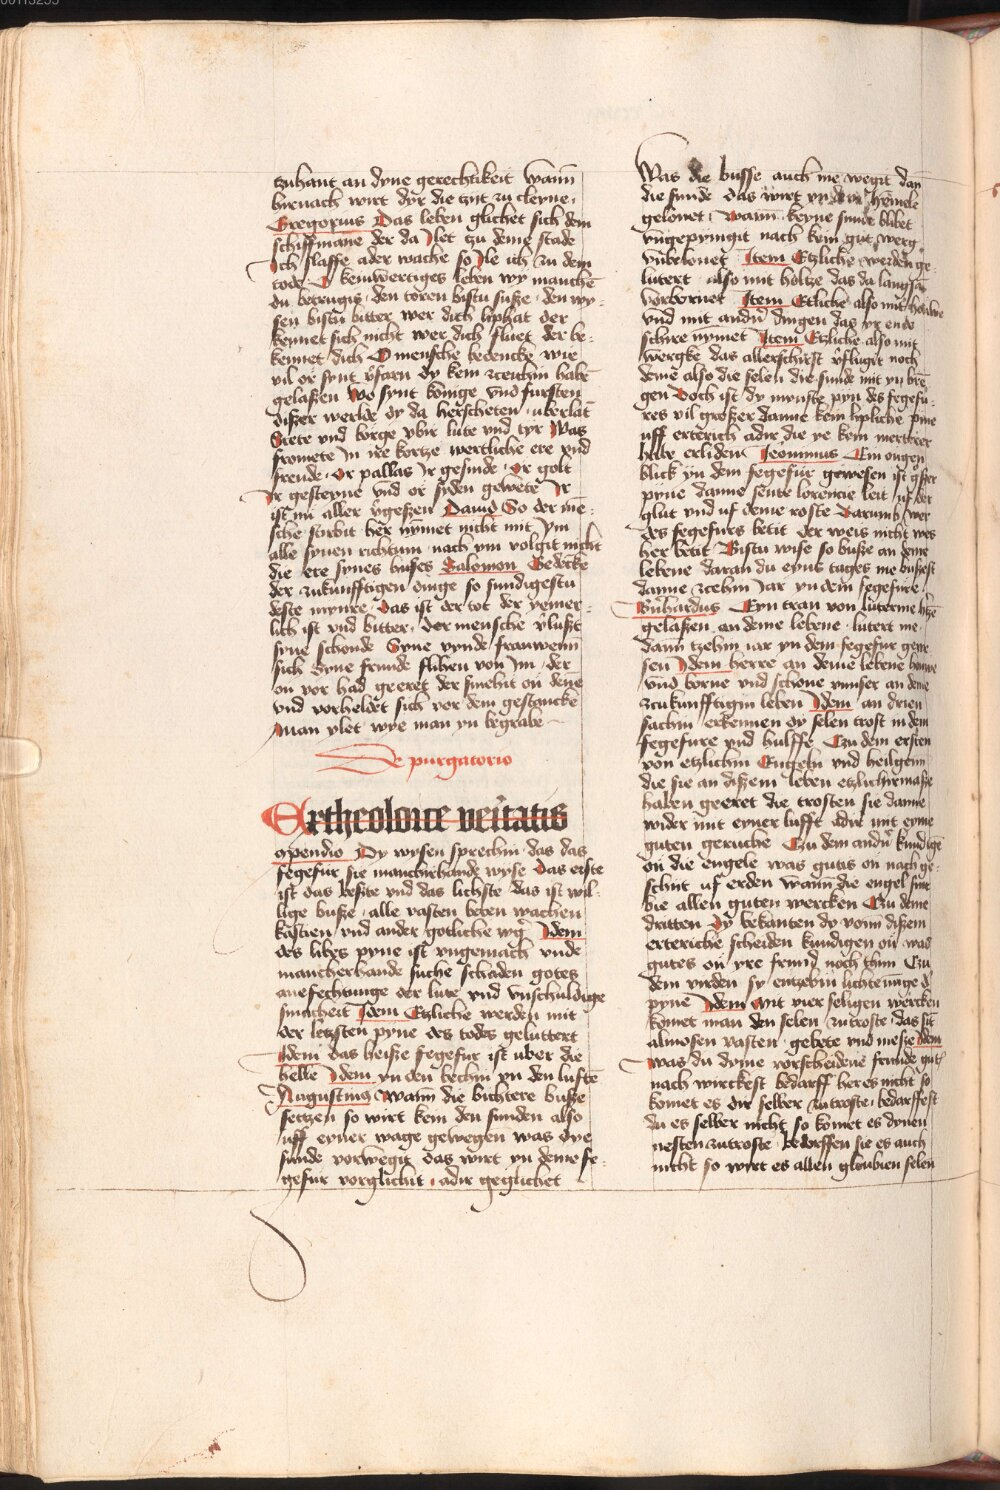 zuhant an dyne gerechtikeit Wann
hirnach wirt dyr die czyt zu cleyne
Gregorius Das leben glichet sich dem
schiffmane der da Ilet czu deme stade
Ich slaffe ader wache so Ile ich zu dem
tode O keinwertiges leben wy manche
du betrugist den toren bistu suße den wy-
sen bistu bitter wer dich liphat der
kennet sich nicht wer dich fluet der be-
kennet dich O mensche bedencke wie
vil or synt vfarn dy kein zceichin habē
gelaßen Wo synt konige vnd fursten
dißer werlde dy da herscheten uberlāt
Stete vnd borge vbir lute vnd tyr Was
fromete In ire kortze wertliche ere vnd
freude Or pallas Ir gesinde Or golt
Ir gesteyne vnd or syden gewete Ir
ist nu aller vgeßen Dauid So der mē-
sche storbit her nymet nicht mit ym
alle synen richtum nach ym volgit nicht
die ere synes huses Salomon Bedēcke
der zukunfftigen dinge so sundigestu
deste mynre Das ist der tot der yemer-
lich ist vnd bitter der mensche vlußt
syne schonde Syne vynde frauwenn
sich Syne frunde flihen von Im der
on vor had geeret der smehit on dene
vnd vorheldet sich vor dem gestancke
Man ylet wye man yn begrabe
De purgatorio
Ex theoloice veritatis
opendio Dy wysen sprechin das das
fegefur sie mancherhande wyse Das erste
ist das beste vnd das lichste das ist wil-
lige buße alle vasten beten wachen
kastien vnd ander gotliche wg Idem
des libes pyne ist vngemach vnde
mancherhande suche schaden gotes
anefechtunge der lute vnd vnschuldige
smacheit Idem Etzliche werden mit
der letzsten pyne des todes geluttert
Idem das heiße fegefur ist uber die
helle Idem yn den bechin yn den lufte
Augustinus Wann die bichtere buße
setzen so wirt kein den sunden also
uff eyner wage gewegen was dye
sunde vorwegit das wirt yn deme fe-
gefur vorglichit adir geglichet
Was die busse auch me wegit dan
die sunde das wirt yn dem hemele
gelonet Wann keyne sunde blibet
vngepynigit nach kein gut werg
vnbelonet Item Etzliche werden ge-
lutert also mit holtze das da langsam
vorbornet Item Etliche also mit
vnd mit andn dingen das yr ende
schire nymet Item Etzliche also mit
wergke das allerschirst vflugit noch
deme also die selen die sunde mit yn brē-
gen Doch ist dy mynste pyn des fegefu-
res vil großer danne kein lipliche pine
uff erterich adir die ye kein merterer
habe erliden Jeronimus Ein ougen
blick yn dem fegefur gewesen ist
pyne danne sente lorencie leit uf der
glut vnd uf deme roste Darumb wer
des fegefurs betit der weis nicht wes
her betit Bistu wise so buße an deme
lebene daran du eyns tages me bußest
danne zcehin Iar yn dem fegefure
Bnhardus Eyn tran von luterme
gelaßen an deme lebene lutert me
dann tzehin iar yn dem fegefur gewe-
sen Idem herre an deme lebene
vnd borne vnd schone vnnser an deme
zcukunfftigin leben Idem an drien
sachin erkennen dy selen trost in dem
fegefure vnd hulffe Czu dem ersten
von etzlichin Engeln vnd heilgenn
die sie an dißem leben etzlichirmaße
haben geeret die trosten sie danne
wider mit eyner lufft adir mit eyme
guten geruche Czu dem andn kundigē
on die engele was gutis on nach ge-
schit uf erden wann die engel sint
bie allen guten wercken Czu deme
dritten Dy bekanten dy vonn dißem
erteriche scheiden kundigen on was
gutes on yre frund noch thun Czu
dem virden sy entzebin lichterūnge d
pyne Idem Mit vier seligen wercken
komet man den selen zutroste das sīt
almosen vasten gebete vnd meße Idem
Was du dyme vorscheidene frunde gut
nach wirckest bedarff her es nicht so
komet es dir selber zutroste bedarffest
du es selber nicht so komet es dynen
nesten zutroste bedorffen sie es auch
nicht so wirt es allen gloubien selen